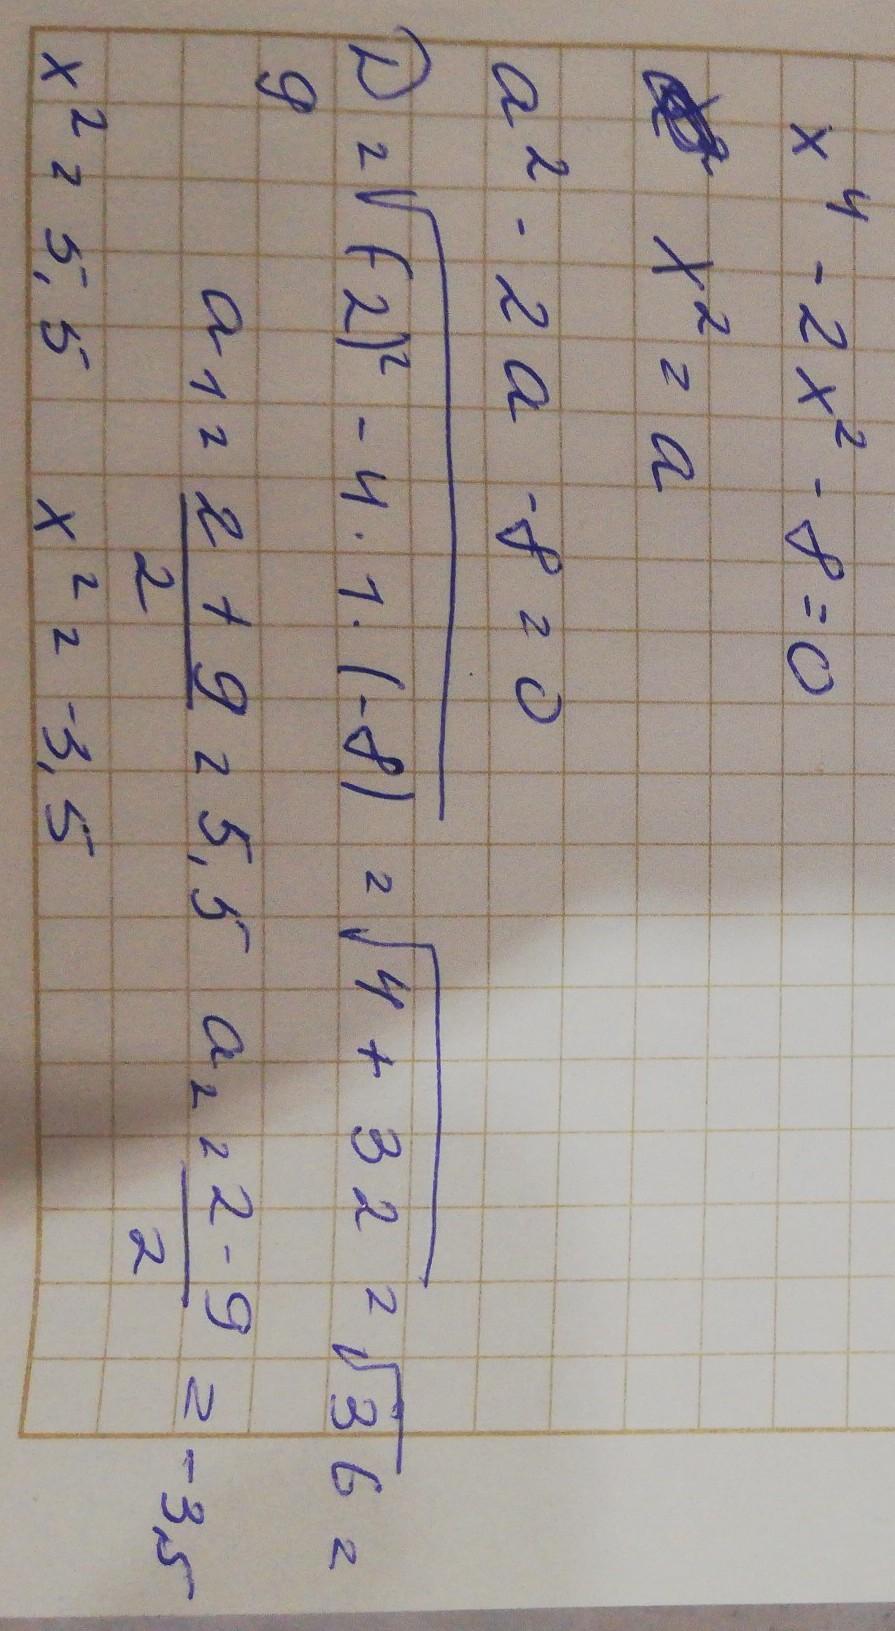 x⁴ - 2x² - 8 = 0
x² = a
a² - 2a - 8 = 0
D = √(-2)² - 4 · 1 · (-8) = √4 + 32 = √36 =
9
a₁ = 2 + 9 / 2 = 5,5 a₂ = 2 - 9 / 2 = -3,5
x² = 5,5 x² = -3,5